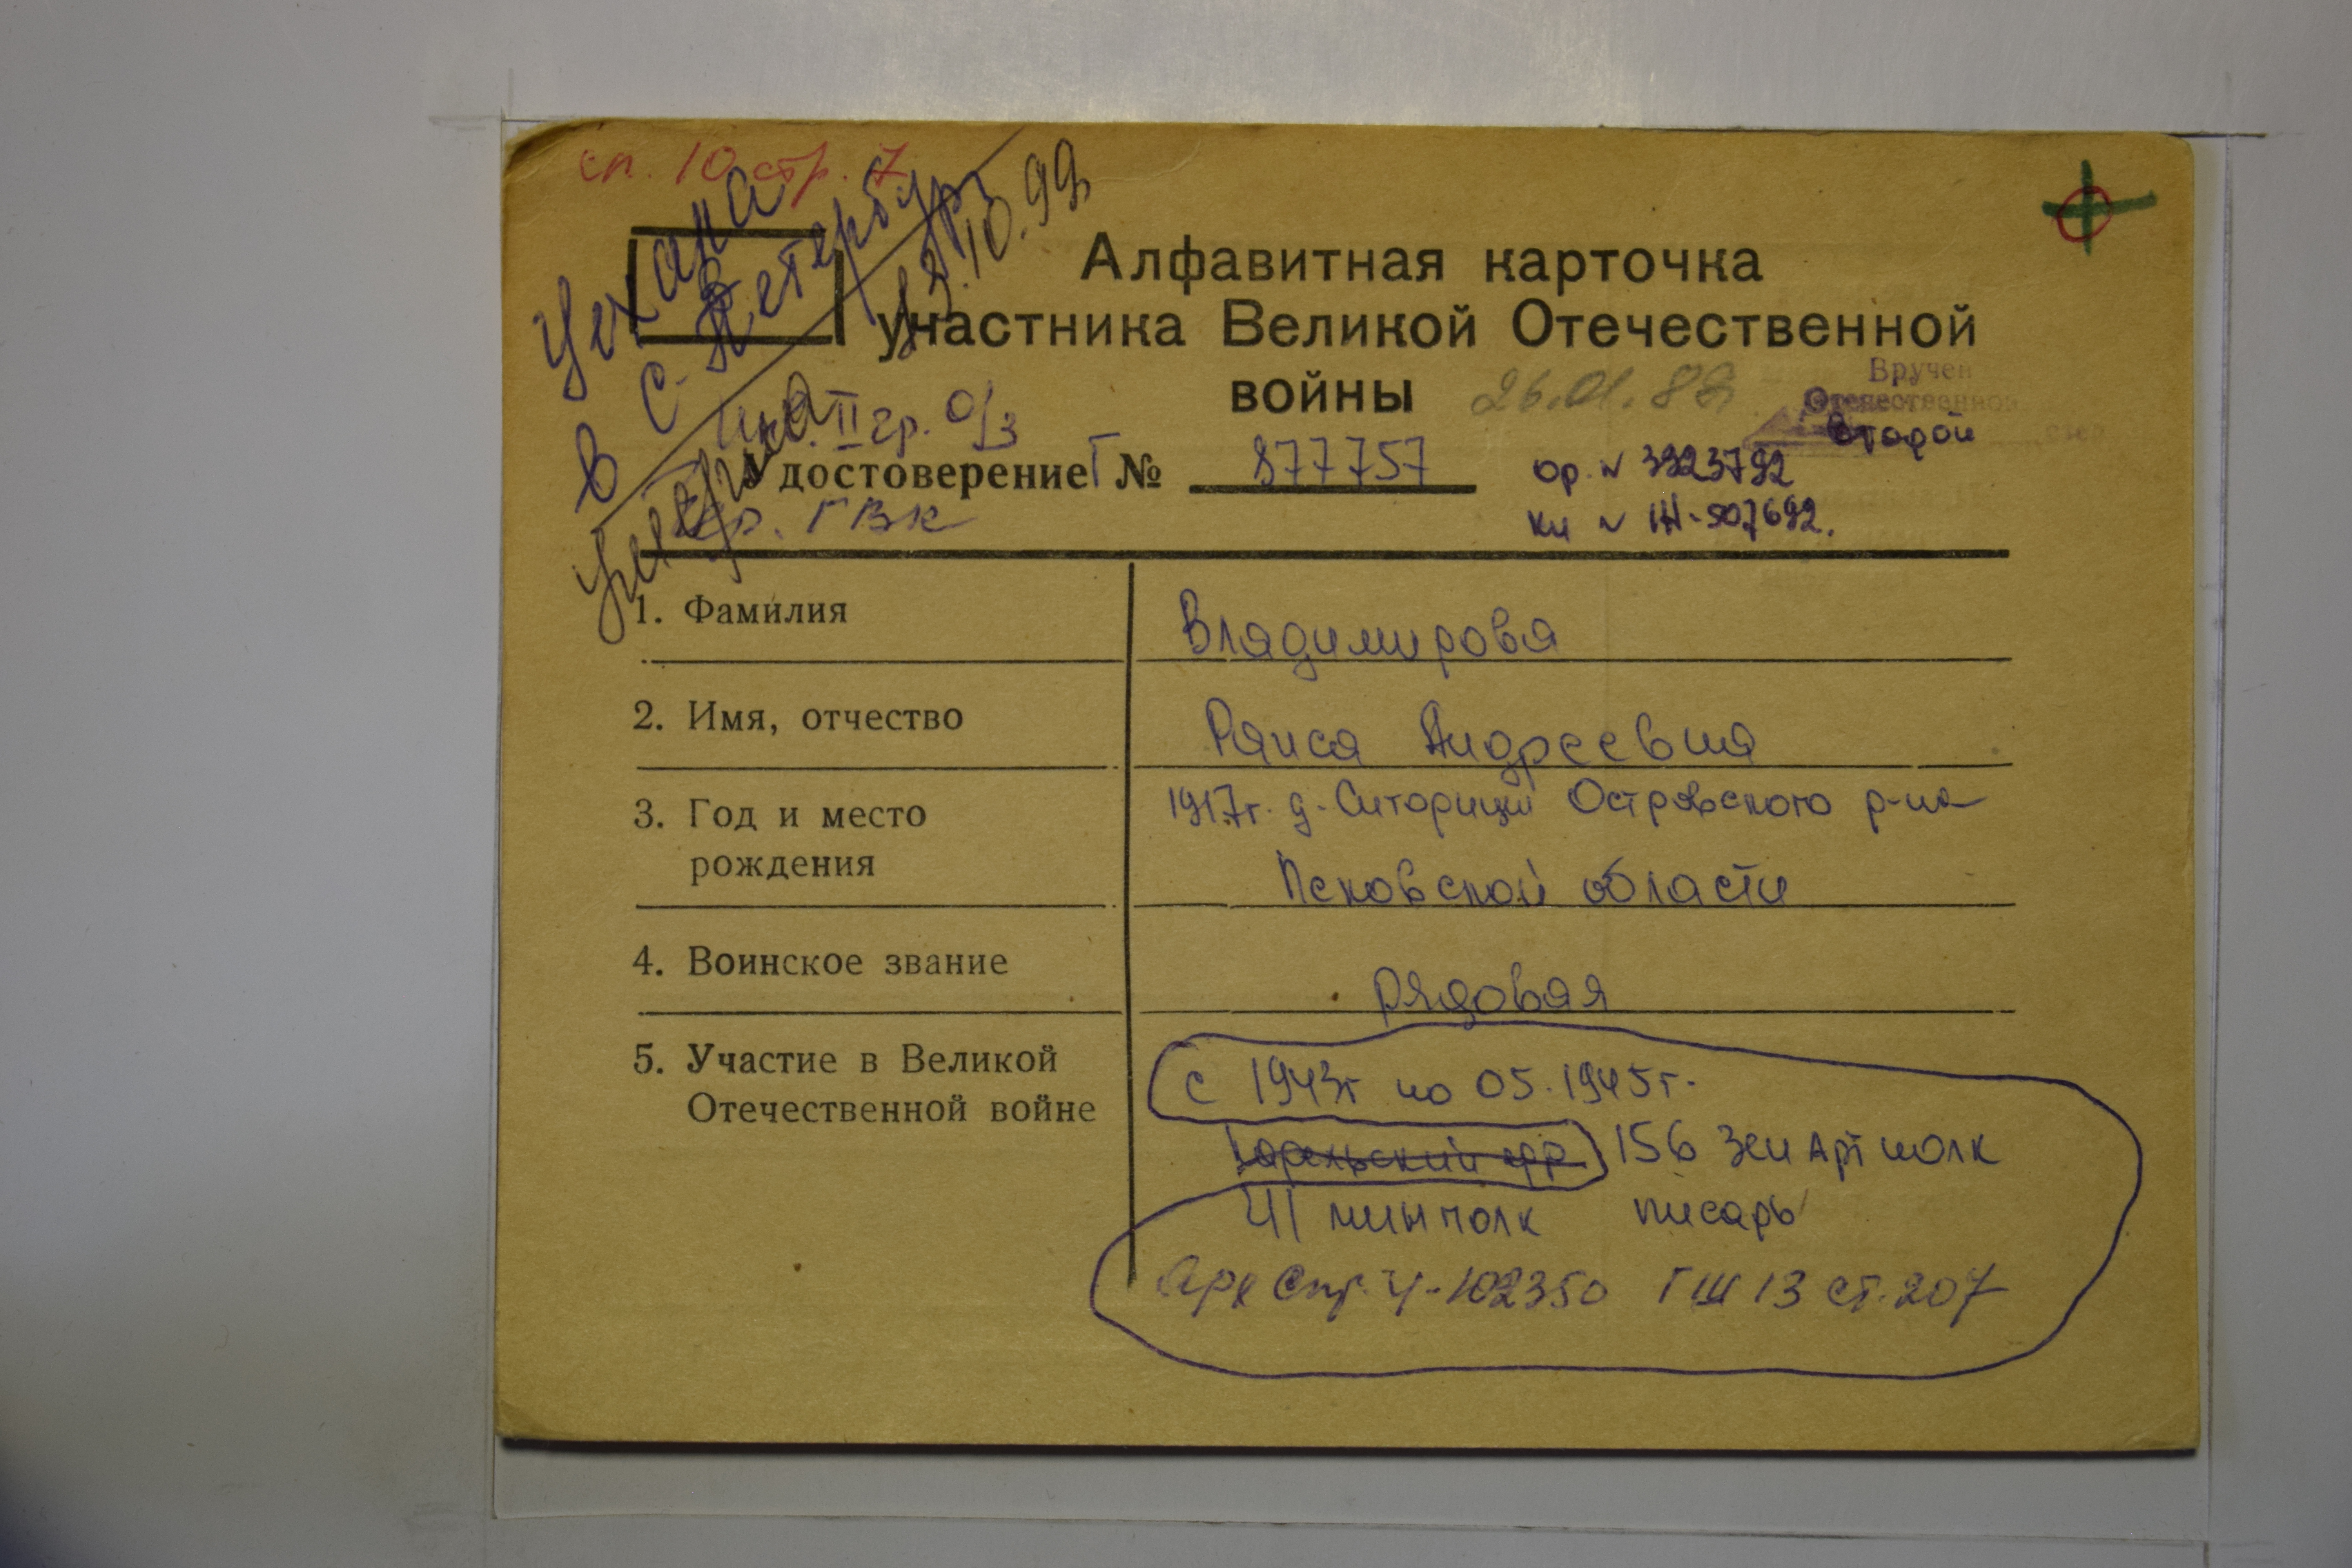 сп. 10 стр. 7
Уехала
в С-Петербург
13.10.99
Алфавитная карточка
участника Великой Отечественной
войны 26.01.88
Вручен
Отечественной
Второй
инв. II гр. о/з
Удостоверение Г № 877757
ор. № 3923792
кн № 1Н-507692.
ГВК
1. Фамилия Владимирова
2. Имя, отчество Раиса Андреевна
3. Год и место 1917г. д. Ситорицы Островского р-на
рождения Псковской области
4. Воинское звание рядовая
5. Участие в Великой с 1943г по 05.1945г.
Отечественной войне Карельский фр. 156 Зен Арт полк
411 минполк писарь
Арх Спр. 4-102350 ГШ 13 ст. 207